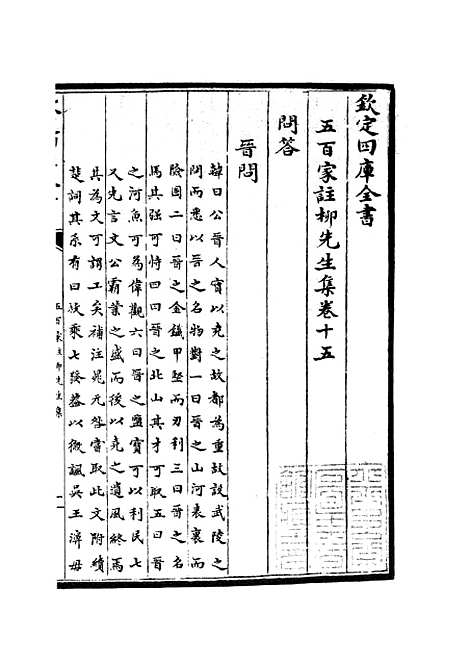 欽定四庫全書
五百家註柳先生集卷十五
問答
晉問
韓曰公晉人實以堯之故都為重故設武陵之
問而悉以晉之名物對一曰晉之山河表裏而
險固二曰晉之金鐵甲堅而刃利三曰晉之名
馬其强可恃四曰晉之北山其才可取五曰晉
之河魚可為偉觀六曰晉之鹽寳可以利民七
又先言文公霸業之盛而後以堯之遺風終焉
其為文可謂工矣補注晁无咎嘗取此文附續
楚詞其系有曰枚乘七發蓋以微諷吳王濞毋
五百家註柳先生集
一